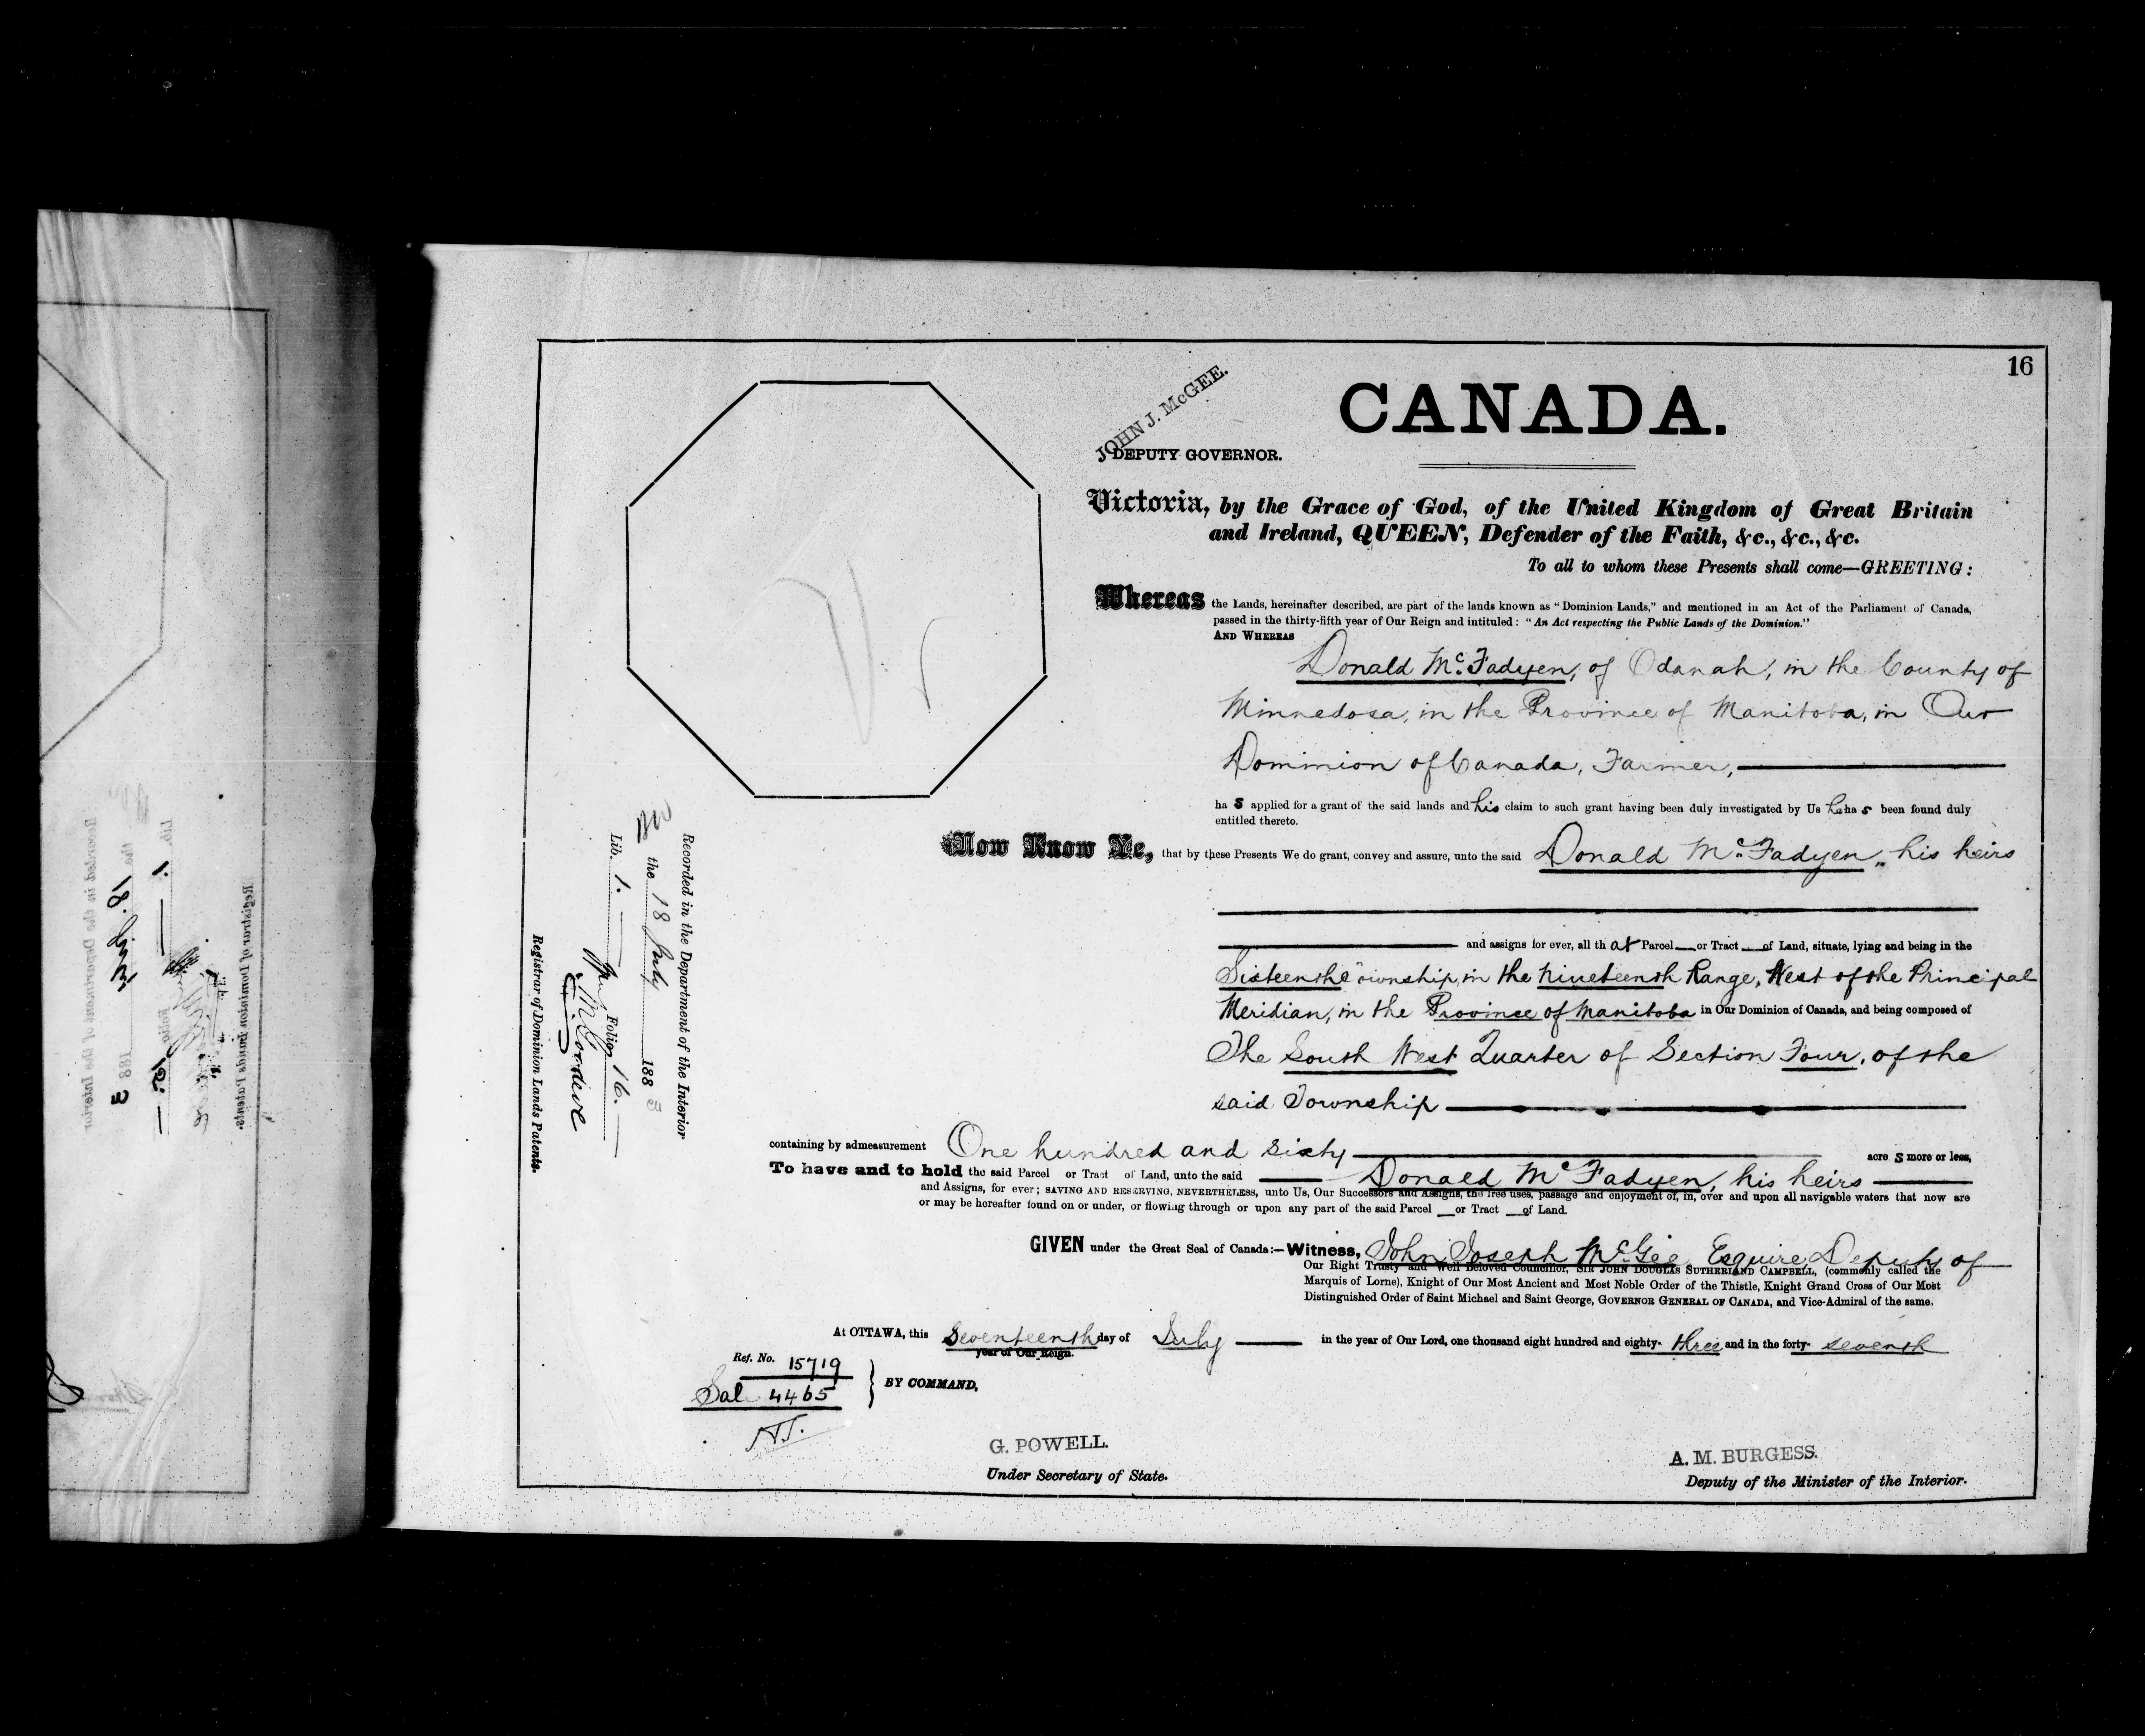 16
JOHN J. McGEE.
DEPUTY GOVERNOR.
CANADA.
Victoria, by the Grace of God, of the United Kingdom of Great Britain
and Ireland, QUEEN, Defender of the Faith, &c., &c., &c.
To all to whom these Presents shall come—GREETING:
Whereas the Lands, hereinafter described, are part of the lands known as "Dominion Lands," and mentioned in an Act of the Parliament of Canada,
passed in the thirty-fifth year of Our Reign and intituled: "An Act respecting the Public Lands of the Dominion."
AND WHEREAS
Donald McFadyen, of Odanah, in the County of
Minnedosa, in the Province of Manitoba, in Our
Dominion of Canada, Farmer,
ha s applied for a grant of the said lands and his claim to such grant having been duly investigated by Us he ha s been found duly
entitled thereto.
Now Know Ye, that by these Presents We do grant, convey and assure, unto the said Donald McFadyen, his heirs
and assigns for ever, all th at Parcel or Tract of Land, situate, lying and being in the
Sixteenth Township, in the Nineteenth Range, West of the Principal
Meridian, in the Province of Manitoba in Our Dominion of Canada, and being composed of
The South West Quarter of Section Four, of the
said Township
containing by admeasurement One hundred and sixty acre s more or less,
To have and to hold the said Parcel or Tract of Land, unto the said Donald McFadyen, his heirs
and Assigns, for ever; SAVING AND RESERVING, NEVERTHELESS, unto Us, Our Successors and Assigns, the free uses, passage and enjoyment of, in, over and upon all navigable waters that now are
or may be hereafter found on or under, or flowing through or upon any part of the said Parcel or Tract of Land.
GIVEN under the Great Seal of Canada:—Witness, John Joseph McGee Esquire Deputy of
Our Right Trusty and Well Beloved Councillor, SIR JOHN DOUGLAS SUTHERLAND CAMPBELL, (commonly called the
Marquis of Lorne), Knight of Our Most Ancient and Most Noble Order of the Thistle, Knight Grand Cross of Our Most
Distinguished Order of Saint Michael and Saint George, GOVERNOR GENERAL OF CANADA, and Vice-Admiral of the same.
At OTTAWA, this Seventeenth day of July in the year of Our Lord, one thousand eight hundred and eighty-three and in the forty-seventh
year of Our Reign.
Ref. No. 15719
Sal 4465
BY COMMAND,
G. POWELL.
Under Secretary of State.
A. M. BURGESS.
Deputy of the Minister of the Interior.
Recorded in the Department of the Interior
the 18 July 188 3
Lib. 1. Folio 16.
Registrar of Dominion Lands Patents.